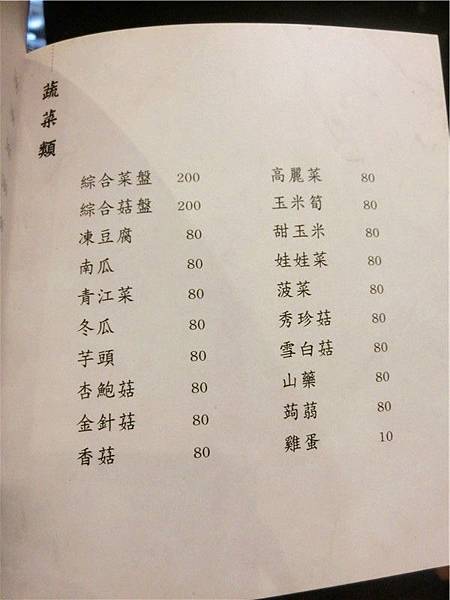 蔬菜類
綜合菜盤 200
綜合菇盤 200
凍豆腐 80
南瓜 80
青江菜 80
冬瓜 80
芋頭 80
杏鮑菇 80
金針菇 80
香菇 80
高麗菜 80
玉米筍 80
甜玉米 80
娃娃菜 80
菠菜 80
秀珍菇 80
雪白菇 80
山藥 80
蒟蒻 80
雞蛋 10